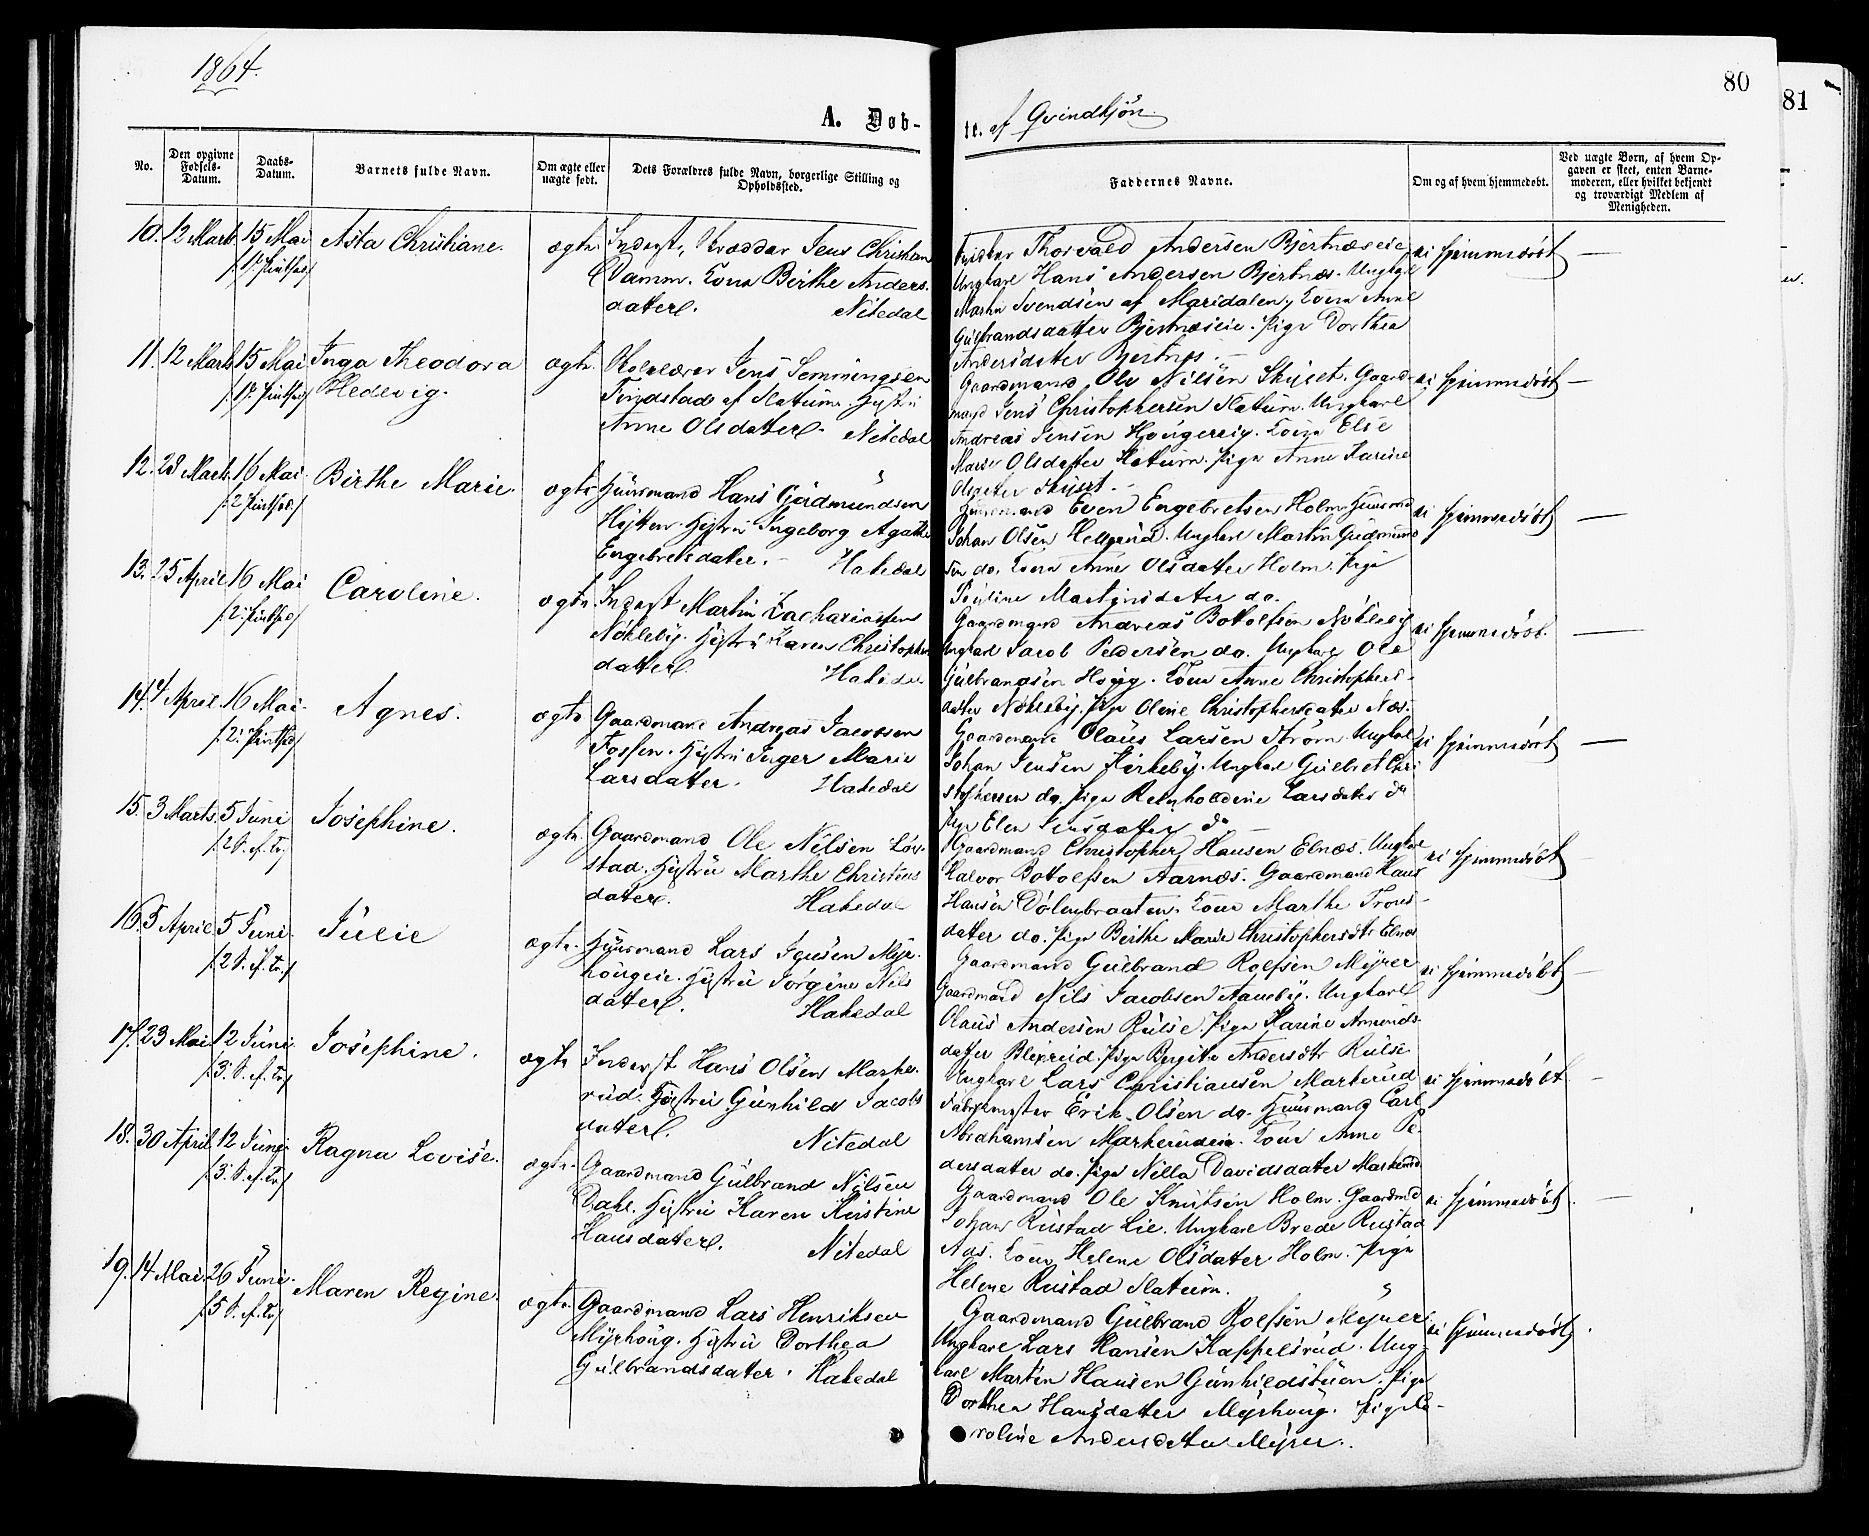 1864.
80
81
A. Døb-
te. af Qvindkjøn.
No.
Den opgivne Fødsels-Datum.
Daabs-Datum.
Barnets fulde Navn.
Om ægte eller uægte født.
Dets Forældres fulde Navn, borgerlige Stilling og Opholdssted.
Faddernes Navne.
Om og af hvem hjemmedøbt.
Ved uægte Børn, af hvem Opgaven er skeet, enten Barnemoderen, eller hvilket bekjendt og troværdigt Medlem af Menigheden.
10. 12 Marts 15 Mai Asta Christiane. ægte.
Inderst, Skrædder Jens Christian
Damm. Kona Birthe Anders-
datter. Nitedal
Thorvald Andersen Bjertnæseie
Ungkarl Hans Andersen Bjertnæs. Ungkarl
Martin Svendsen af Maridalen, Kona Anne
Gulbrandsdatter Bjertnæseie. Pige Dorthea
Andersdatter Bjertnæs.
ei hjemmedøbt —
11. 12 Marts 15 Mai Inga Theodora
Hedevig. ægte.
Skolelærer Jens Semmingsen
Tindstad af Slatum. Hustru
Anne Olsdatter. Nitedal
Gaardmand Ole Nilsen Skyset. Gaard-
mand Jens Christophersen Slatum. Ungkarl
Andreas Jensen Hougerrig. Kona Else
Marie Olsdatter Slatum. Pige Anne Karine
Olsdatter Skyset.
ei hjemmedøbt —
12. 28 Marts 16 Mai Birthe Marie. ægte
Huusmand Hans Gudmundsen
Hytten. Hustru Ingeborg Agathe
Engebretsdatter. Hakedal
Huusmand Even Engebretsen Holm. Huusmd
Johan Olsen Hellerud. Ungkarl Martin Gudmund
sen do. Kona Anne Olsdatter Holm. Pige
Pauline Martinsdatter do.
ei hjemmedøbt —
13. 25 April 16 Mai Caroline. ægte.
Inderst Martin Zachariassen
Nökleby. Hustru Karen Christophers
datter. Hakedal
Gaardmand Andreas Botolfsen Nökleby
Ungkarl Jacob Pedersen do. Ungkarl Ole
Gulbrandsen Houg. Kona Anne Christophers-
datter Nökleby. Pige Oline Christophersdatter Næs.
ei hjemmedøbt. —
14. 4 April 16 Mai Agnes. ægte
Gaardmand Andreas Jacobsen
Fossen. Hustru Inger Marie
Larsdatter. Hakedal
Gaardmand Olaus Larsen Strøm. Ungkarl
Johan Jensen Kirkeby. Ungkarl Gulbret Chri
stophersen do. Pige Reinholdine Larsdatter do
Pige Elen Jensdatter do
ei hjemmedøbt —
15. 3 Marts 5 Juni Josephine. ægte.
Gaardmand Ole Nilsen Löv-
stad. Hustru Marthe Christens
datter. Hakedal
Gaardmand Christopher Hansen Elnæs. Ungkarl
Halvor Botolfsen Aarnæs. Gaardmand Hans
Hansen Dölenbraaten. Kona Marthe Trons-
datter do. Pige Birthe Marie Christophersdtr Elnæs
ei hjemmedøbt
16. 5 April 5 Juni Julie ægte.
Huusmand Lars Jensen Myr-
hougeie. Hustru Jörgine Nils
datter. Hakedal
Gaardmand Gulbrand Rolfsen Myrer
Gaardmand Nils Jacobsen Aaneby. Ungkarl
Olaus Andersen Rulse. Pige Karine Amunds-
datter. Pige Bergitte Andersdtr Rulse
ei hjemmedøbt —
17. 23 Mai 12 Juni Josephine. ægte
Inderst Hans Olsen Marke-
rud. Hustru Gunhild Jacobs
datter. Nitedal
Ungkarl Lars Christiansen Markerud
Erik Olsen do. Huusmand Carl
Abrahamsen Markerudeie. Kona Anne Pe-
dersdatter do. Pige Nilla Davidsdatter Markerud
ei hjemmedøbt —
18. 30 April 12 Juni Ragna Lovise. ægte.
Gaardmand Gulbrand Nilsen
Dahl. Hustru Karen Kirstine
Hansdatter. Nitedal
Gaardmand Ole Knutsen Holm. Gaardmd
Johan Rustad Lie. Ungkarl Brede Rustad
Aas. Kona Helene Olsdatter Holm. Pige
Helene Rustad Slatum.
ei hjemmedøbt. —
19. 14 Mai 26 Juni Maren Regine. ægte.
Gaardmand Lars Henriksen
Myrhoug. Hustru Dorthea
Gulbrandsdatter. Hakedal
Gaardmand Gulbrand Rolfsen Myrer.
Ungkarl Lars Hansen Kappelsrud. Ung-
karl Martin Hansen Gunhildstuen. Pige
Dorthea Hansdatter Myrhoug. Pige Ca-
roline Andersdatter Myrer.
ei hjemmedøbt.